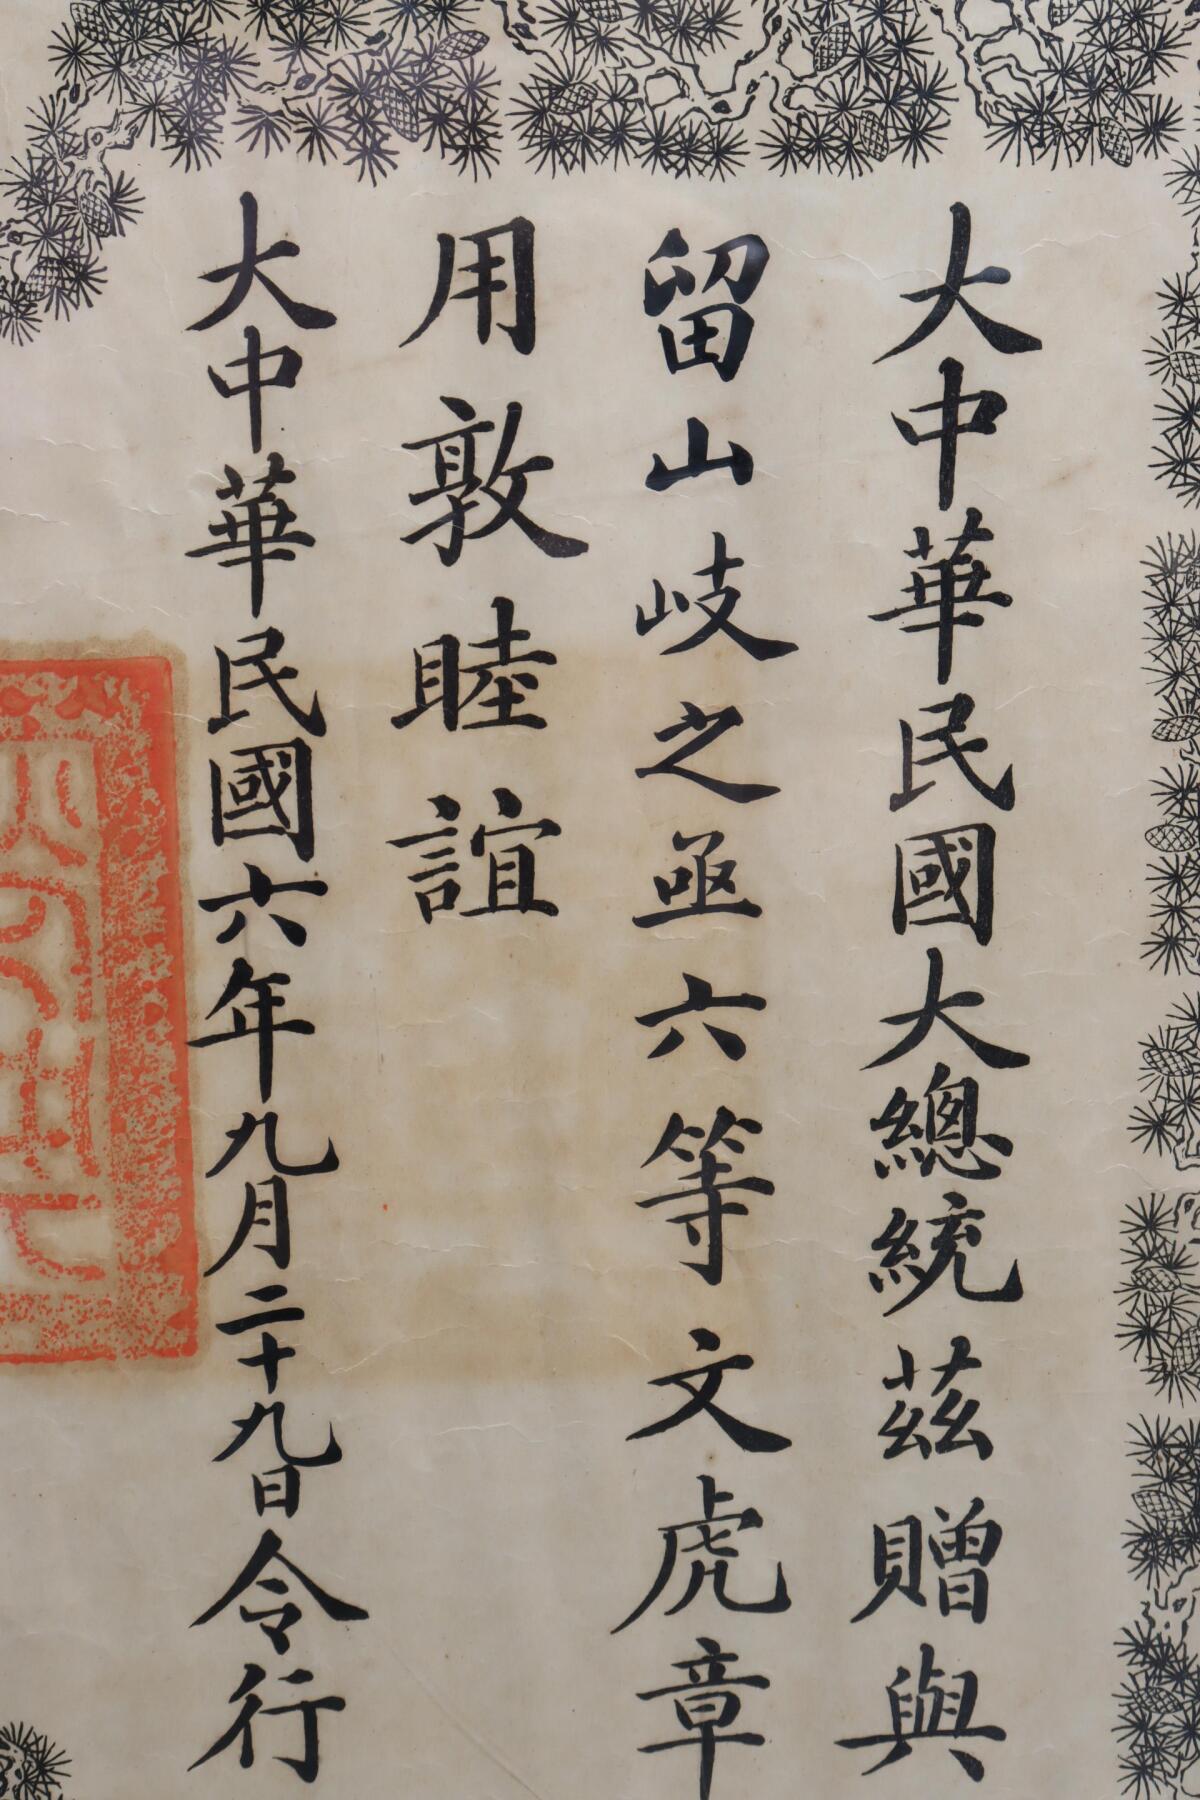 大中華民國大總統茲贈與
留山歧之亟六等文虎章
用敦睦誼
大中華民國六年九月二十九日令行